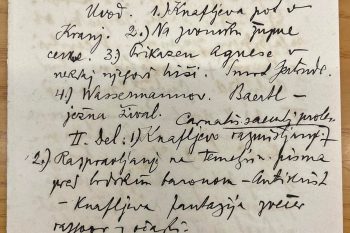 Uvod. 1.) Knafljeva pot v
Kranj. 2.) Na zvoniku župne
cerkve. 3) Prikazen Agnese v
nekdaj njegovi hiši. Smrt
4.) Wassermannov. Baertl –
ježna žival.
II. del: 1) Knafljevo razmišljanje
2.) Razpravljanje na temelju pisma
pred brdskim baronom – Antikrist
– Knafljeva fantazija zvečer